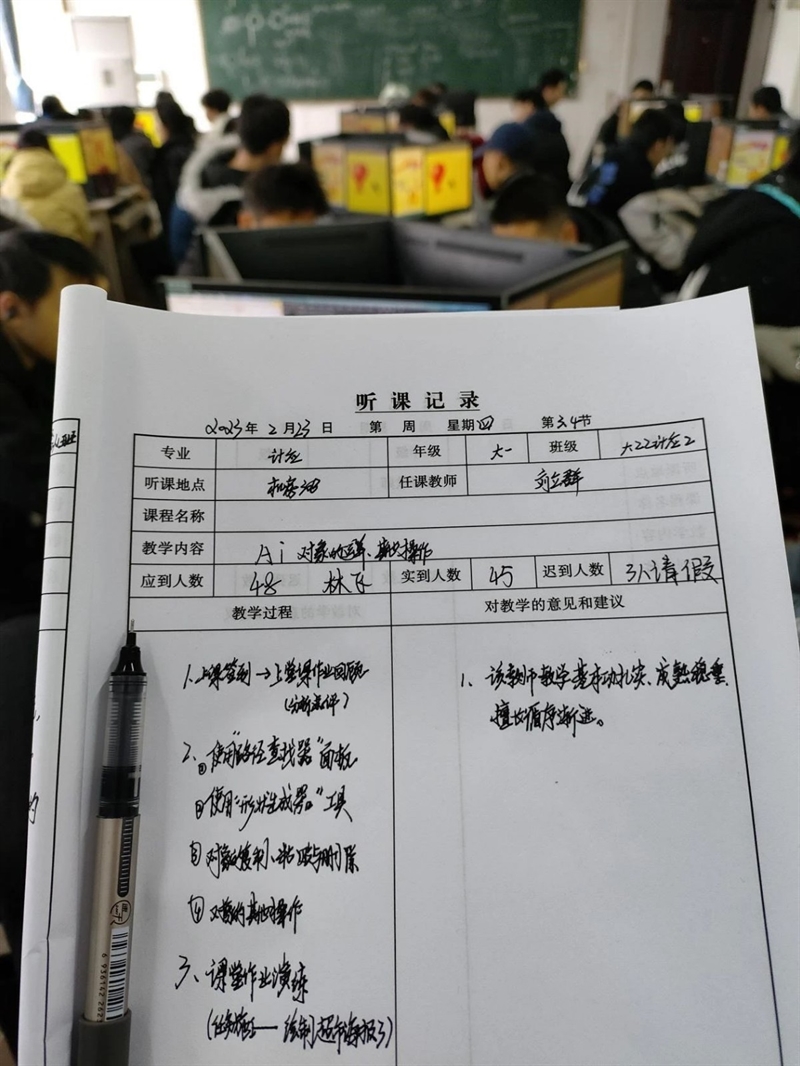 听课记录
2023年 2月23日 第 周 星期四 第3.4节
专业 计应 年级 大一 班级 大22计应2
听课地点 机房 任课教师 刘立群
课程名称
教学内容 Ai 对象的 操作
应到人数 48 实到人数 45 迟到人数 3人请假
教学过程 对教学的意见和建议
1、上课签到→上堂课作业回顾
(分析点评)
2、①使用"路径查找器"面板
②使用"形状生成器"工具
③对象的复制、粘贴与删除
④对象的其他操作
3、课堂作业演练
(任务 — 绘制超市海报)
1、该教师教学基本功扎实、成熟稳重
擅长循序渐进。
6 936162 262